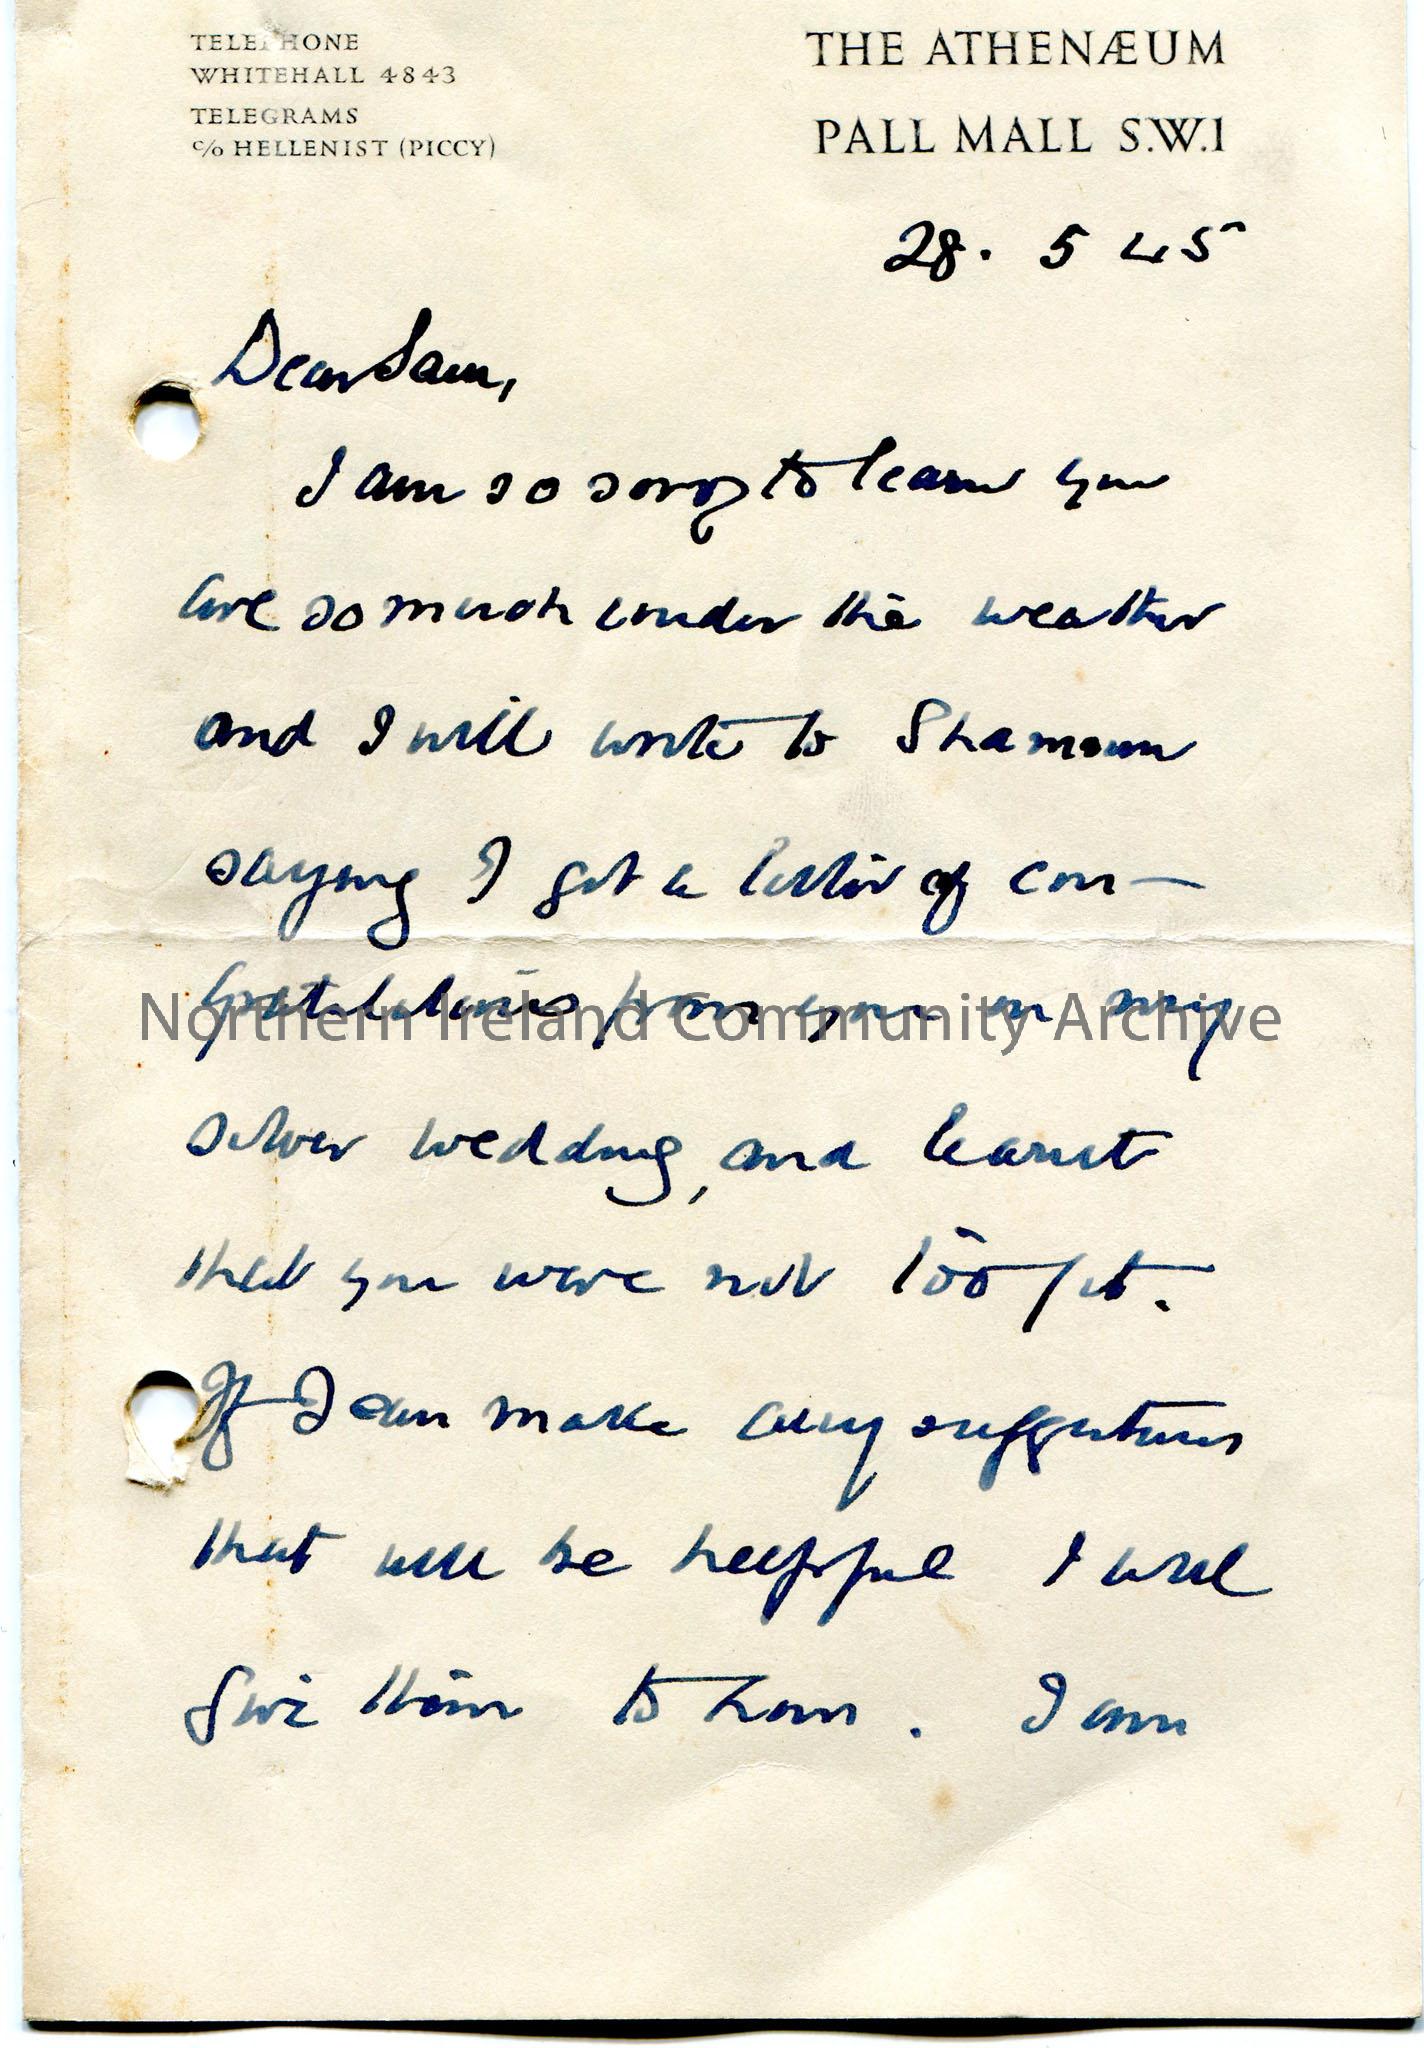 TELEPHONE
WHITEHALL 4843
TELEGRAMS
c/o HELLENIST (PICCY)
THE ATHENÆUM
PALL MALL S.W.1
28. 5 45
Dear Sam,
I am so sorry to learn you
are so much under the weather
and I will write to Shamoun
saying I got a letter of con-
gratulations from you on my
silver wedding, and learnt
that you were not too fit.
If I can make any suggestions
that will be helpful I will
give them to him. I am
Northern Ireland Community Archive